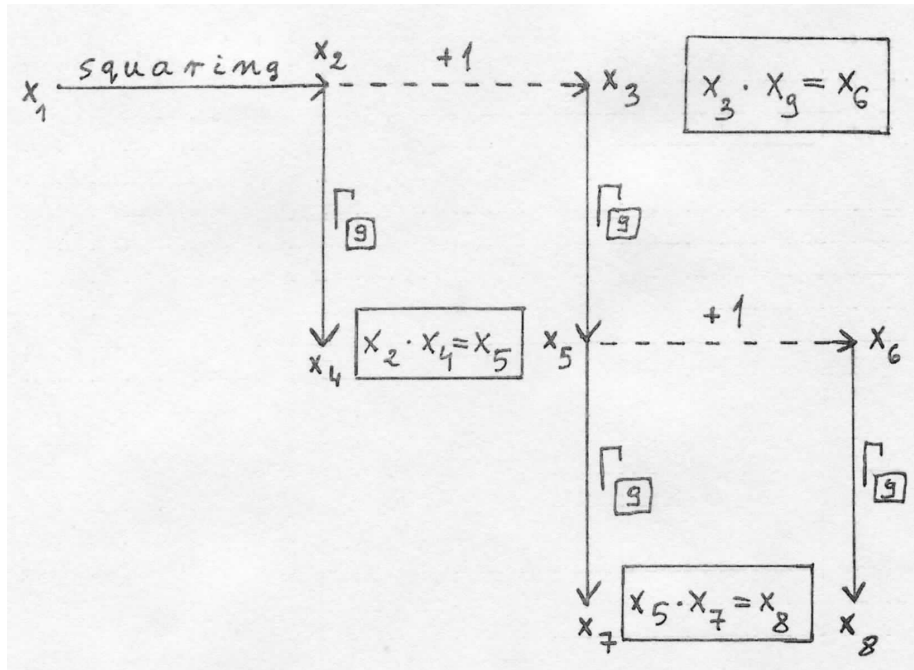 squaring
x₁
x₂
+1
x₃
x₃ · x₉ = x₆
Γ 9
Γ 9
x₄
x₂ · x₄ = x₅
x₅
+1
x₆
Γ 9
Γ 9
x₇
x₅ · x₇ = x₈
x₈